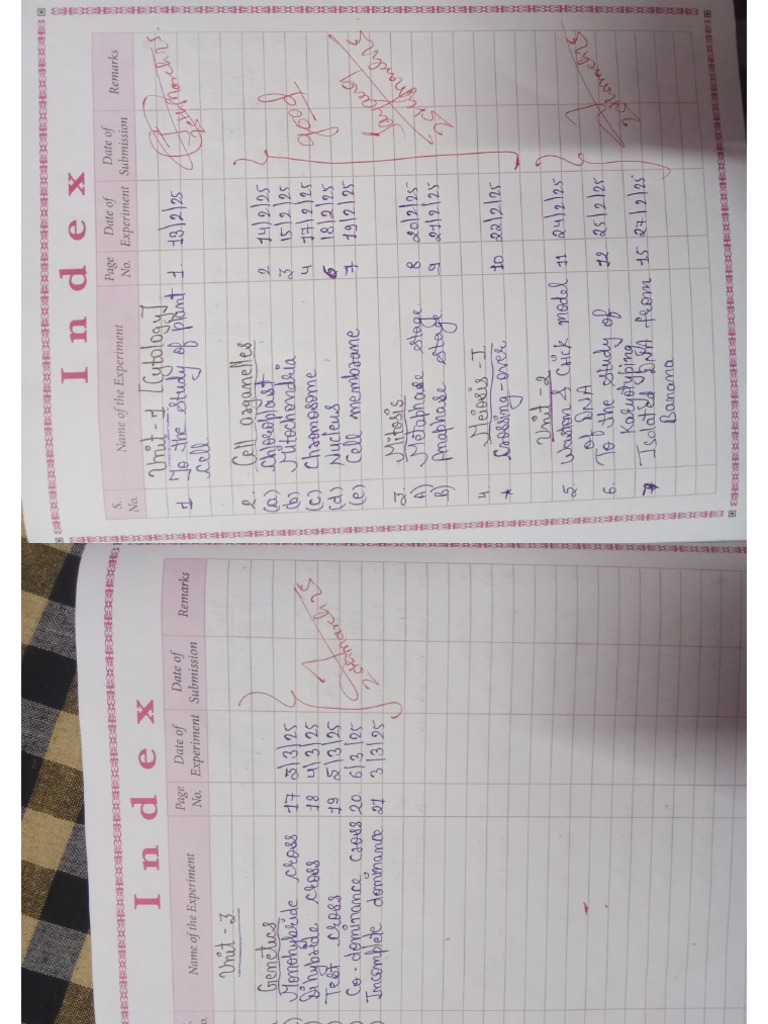 Index
S. No. Name of the Experiment Page No. Date of Experiment Date of Submission Remarks
Unit-1 [Cytology]
1 To the study of plant 1 13/2/25
cell
2. Cell organelles
(a) Chloroplast 2 14/2/25
(b) Mitochondria 3 15/2/25
(c) Chromosome 4 17/2/25 good
(d) Nucleus 6 18/2/25
(e) Cell membrane 7 19/2/25
3. Mitosis
A) Metaphase stage 8 20/2/25
B) Anaphase stage 9 21/2/25
4 Meiosis-I
* Crossing-over 10 22/2/25
Unit-2
5 Waston & Crick model 11 24/2/25
of DNA
6. To the study of 12 25/2/25
Karyotyping
7 Isolated DNA from 15 27/2/25
Banana
Index
Name of the Experiment Page No. Date of Experiment Date of Submission Remarks
Unit-3
Genetics
Monohybride cross 17 3/3/25
Dihybride cross 18 4/3/25
Test cross 19 5/3/25
Co-dominance cross 20 6/3/25
Incomplete dominance 21 3/3/25